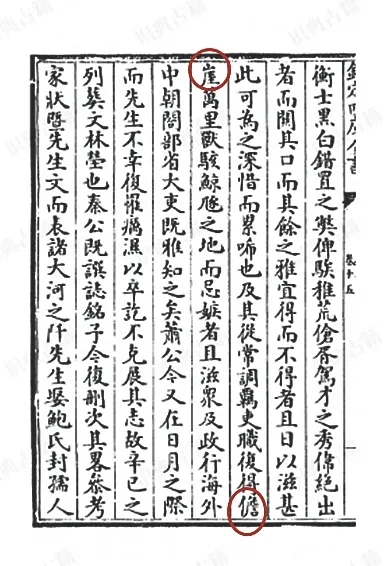 欽定四庫全書
卷十五
衡士黑白錯置之弊俾騃雅荒傖吝駕才之秀偉絕出
者而關其口而其餘之雅宜得而不得者且日以滋甚
此可為之深惜而累唏也及其從常調羈吏職復得儋
崖萬里獸駭鯨䝘之地而忌嫉者且滋衆及政行海外
中朝閣部省大吏既雅知之矣蕭公今又在日月之際
而先生不幸復罹瘴濕以卒訖不克展其志故辛巳之
列葬文林塋也秦公既譔誌銘子今復刪次其畧叅考
家狀曁先生文而表諸大河之阡先生娶鮑氏封孺人